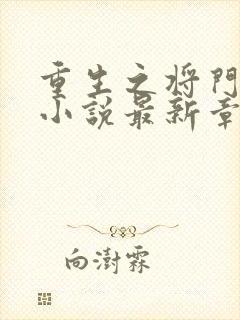 重生之将門
小説最新章
向澍霖